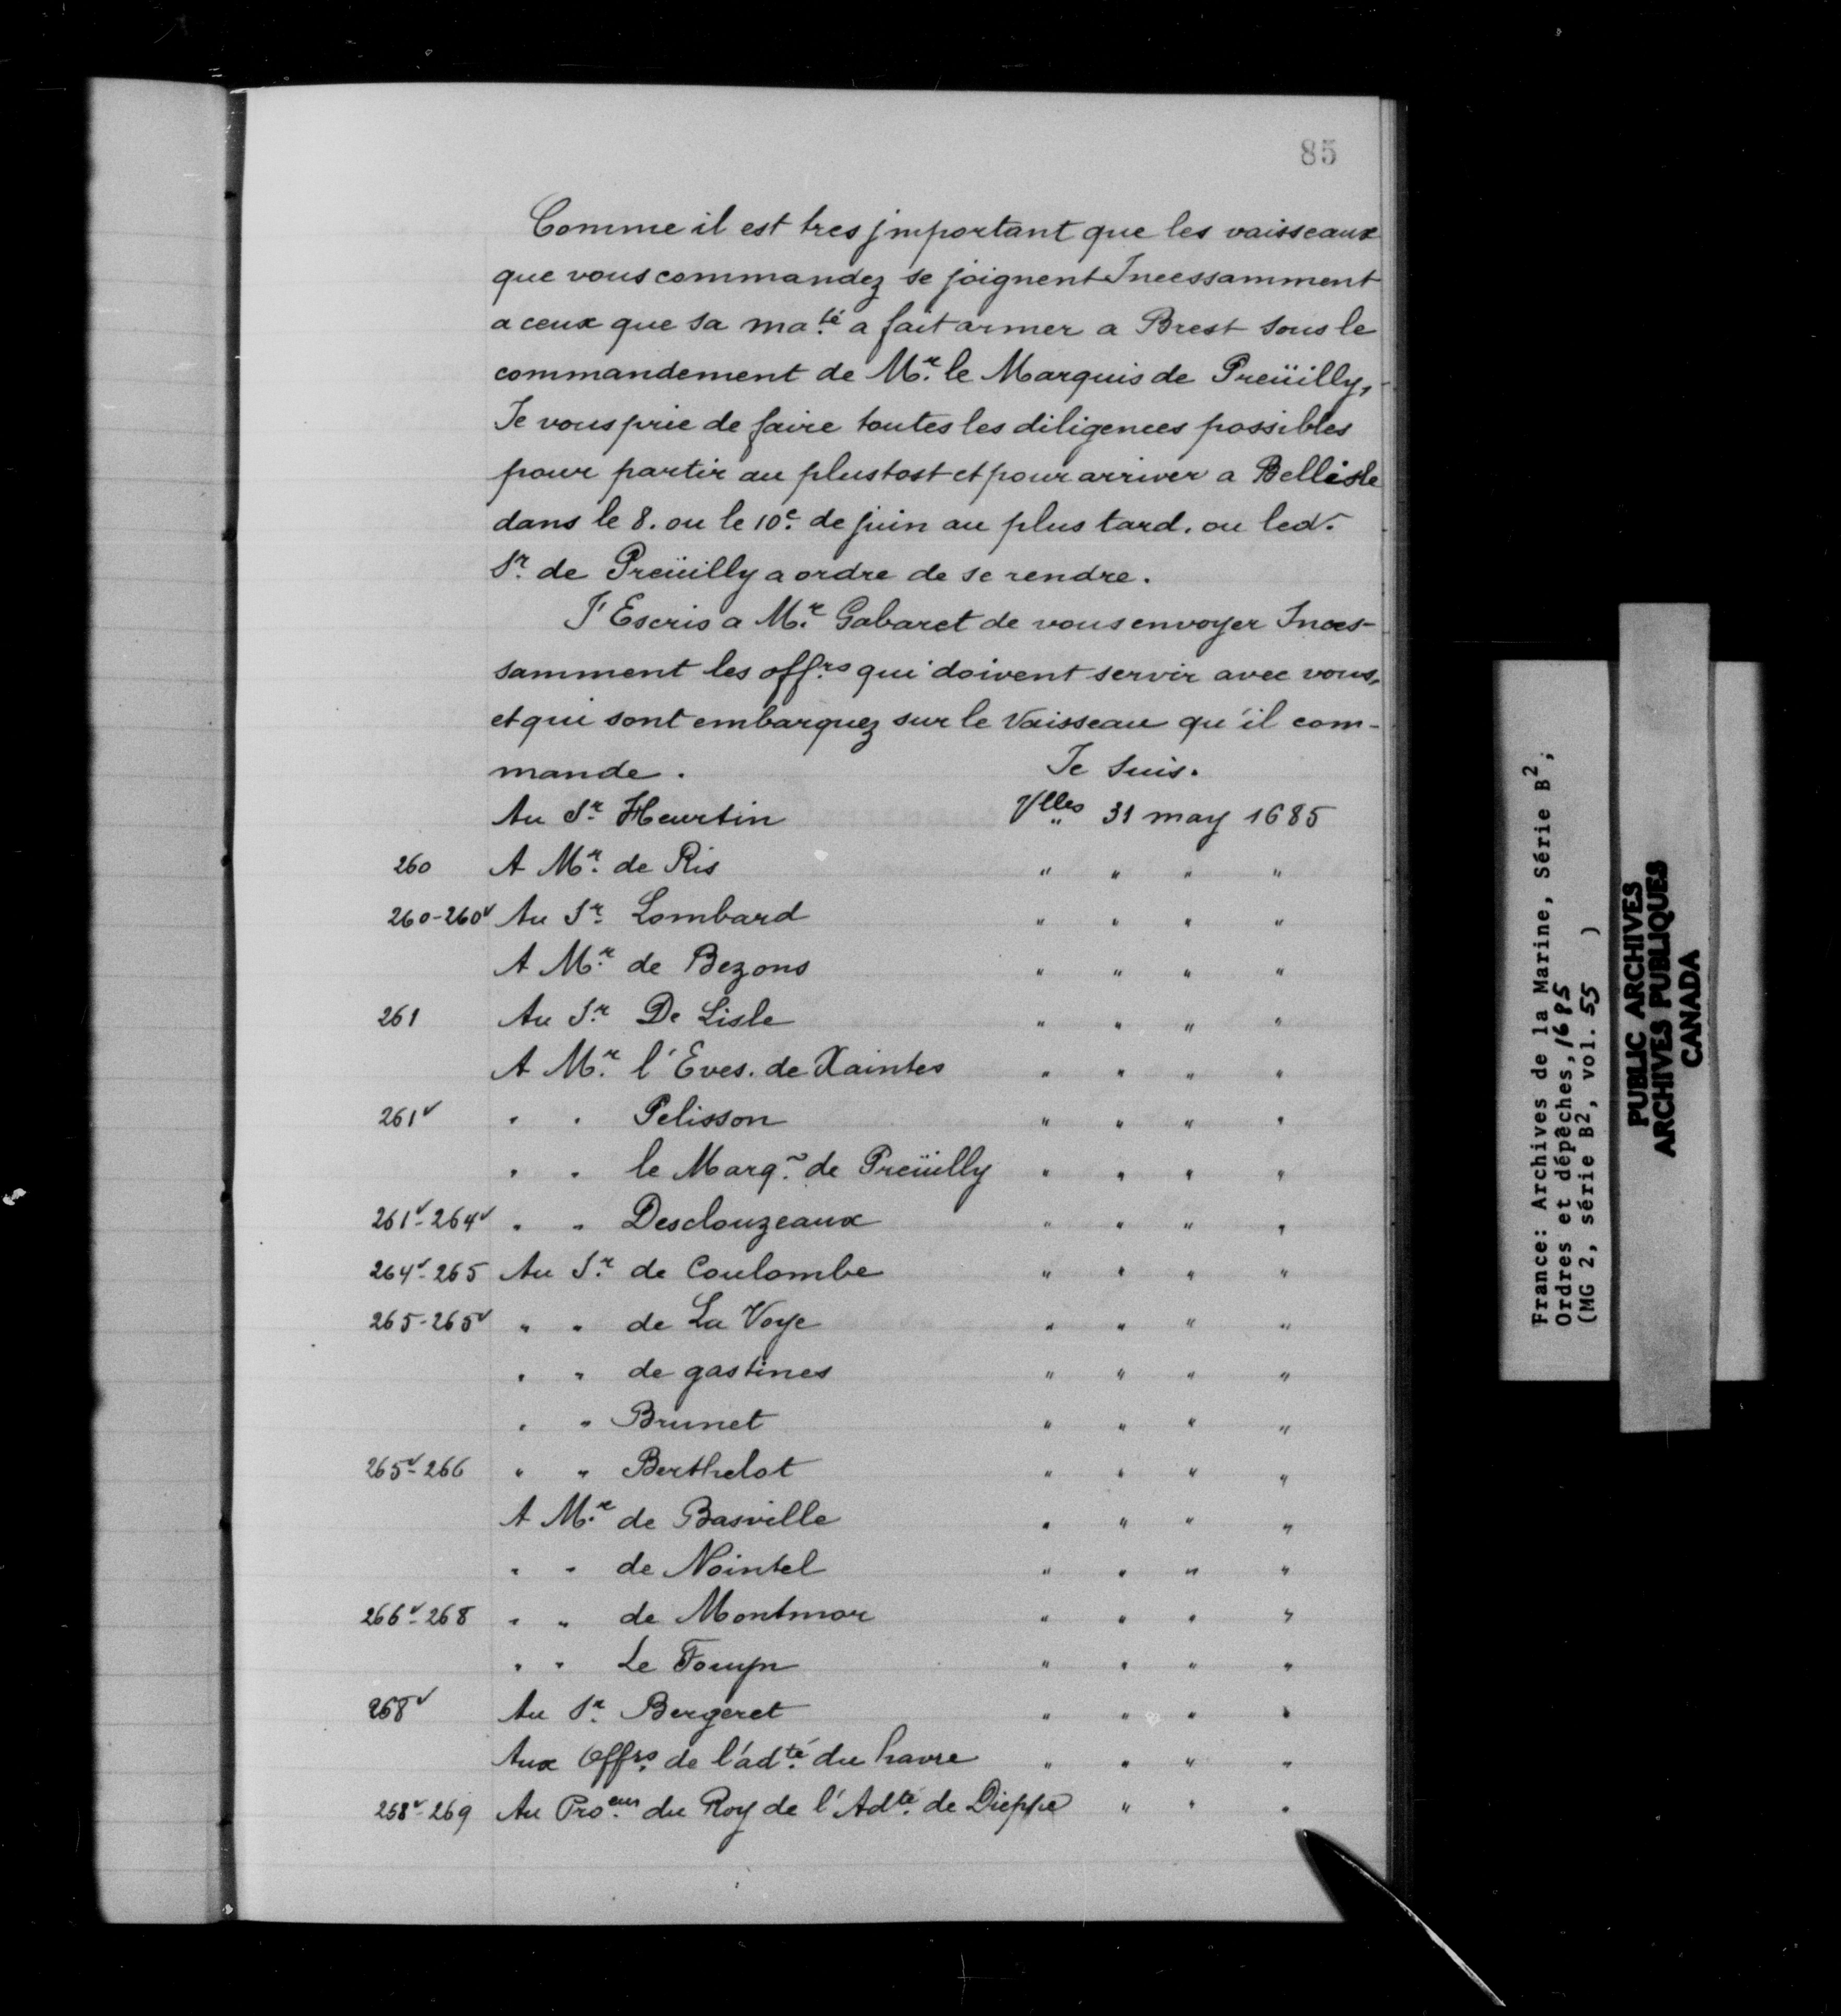 85
Comme il est tres jmportant que les vaisseaux
que vous commandez se joignent Incessamment
a ceux que sa ma.té a fait armer a Brest sous le
commandement de M.r le Marquis de Preüilly,
Je vous prie de faire toutes les diligences possibles
pour partir au plustost et pour arriver a Bellisle
dans le 8. ou le 10.e de juin au plus tard. ou led.
S.r de Preüilly a ordre de se rendre.
J'Escris a M.r Gabaret de vous envoyer Inces-
samment les off.rs qui doivent servir avec vous,
et qui sont embarquez sur le Vaisseau qu'il com-
mande. Je suis.
Au S.r Heurtin V.lles 31 may 1685
260 A M.r de Ris " " " "
260-260v Au S.r Lombard " " " "
A M.r de Bezons " " " "
261 Au S.r De Lisle " " " "
A M.r l'Eves. de Xaintes " " " "
261v " " Pelisson " " " "
" " le Marq. de Preüilly " " " "
261v-264v " " Desclouzeaux " " " "
264v-265 Au S.r de Coulombe " " " "
265-265v " " de La Voye " " " "
" " de gastines " " " "
" " Brunet " " " "
265v-266 " " Berthelot " " " "
A M.r de Basville " " " "
" " de Nointel " " " "
266v-268 " " de Montmor " " " "
" " Le " " " "
268v Au S.r Bergeret " " " "
Aux Off.rs de l'ad.té du havre " " " "
268v-269 Au Pro.eur du Roy de l'Ad.té de Dieppe " " "
France: Archives de la Marine, Série B2,
Ordres et dépêches, 1685
(MG 2, série B2, vol. 55 )
PUBLIC ARCHIVES
ARCHIVES PUBLIQUES
CANADA